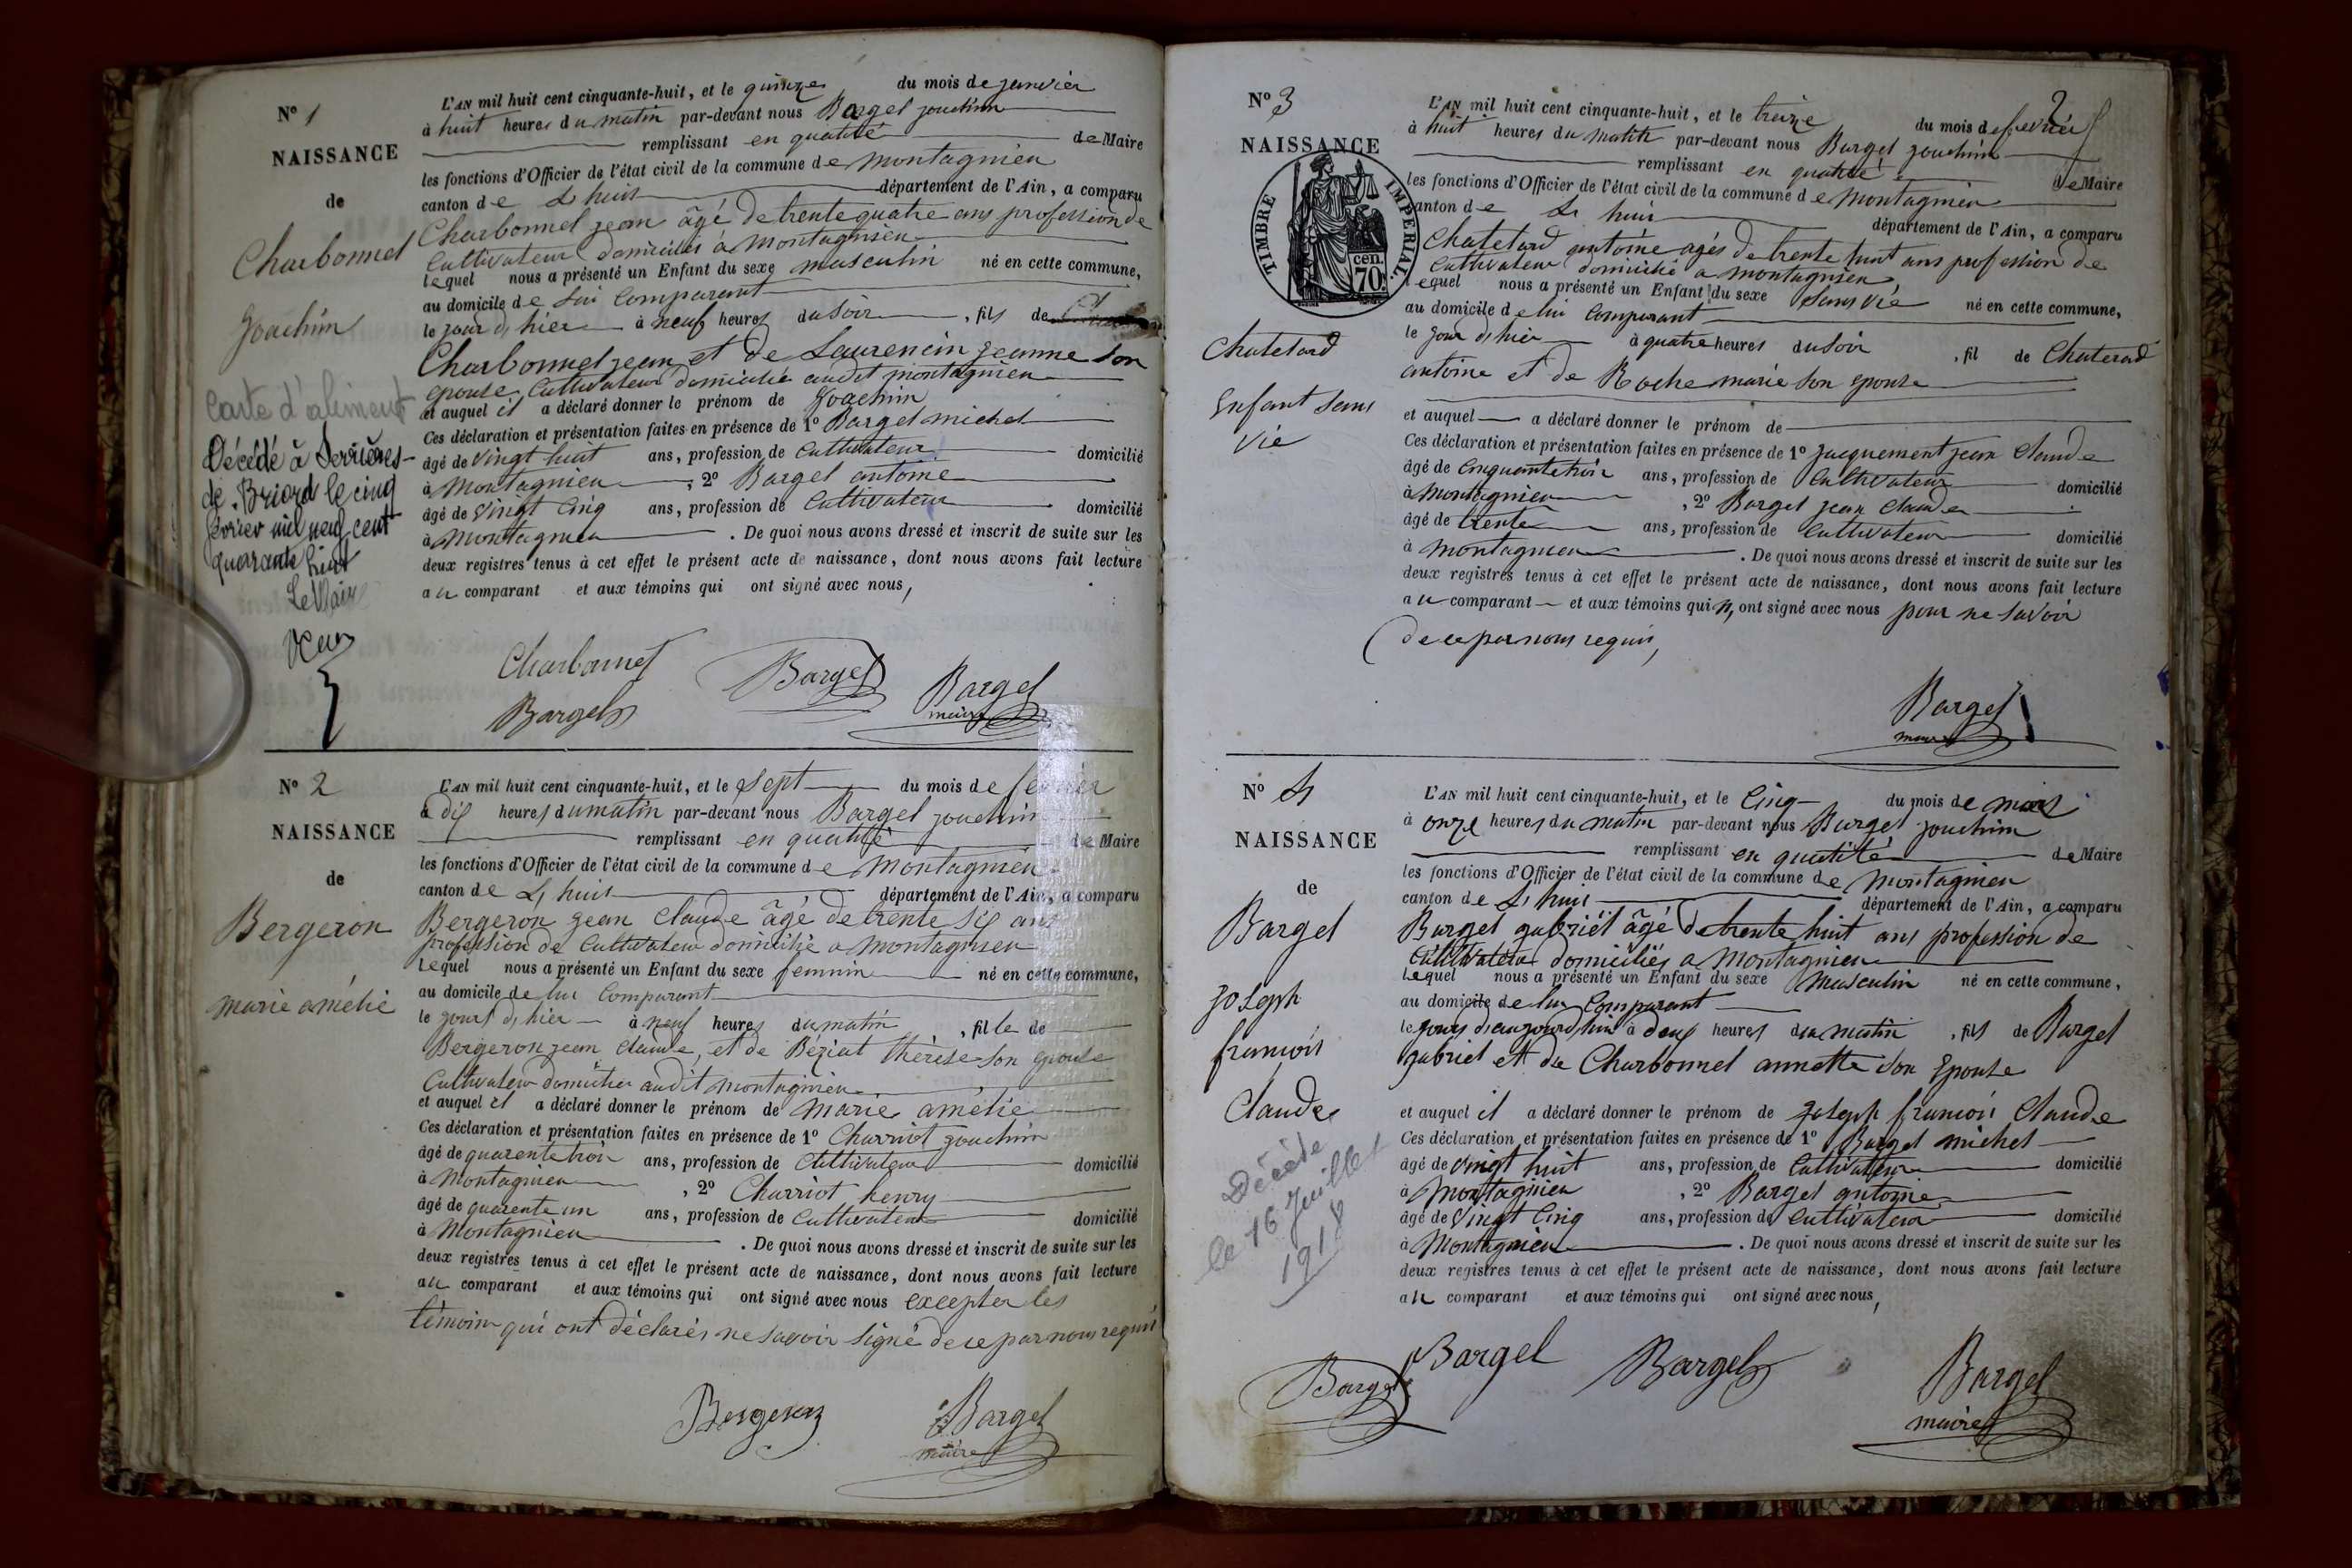 N° 1
NAISSANCE
de
Charbonnel
Joachim
Carte d'aliment
Décédé à Serrières-
de-Briord le cinq
février mil neuf cent
quarante huit
Le Maire
L'AN mil huit cent cinquante-huit, et le quinze du mois de janvier
à huit heures du matin par-devant nous Bargel joachim
remplissant en qualité de Maire
les fonctions d'Officier de l'état civil de la commune de montagnieu
canton de L huis département de l'Ain, a comparu
Charbonnel jean âgé de trente quatre ans profession de
Cultivateur domiciliés à Montagnieu
lequel nous a présenté un Enfant du sexe masculin né en cette commune,
au domicile de lui Comparant
le jour d, hier à neuf heures du soir, fils de
Charbonnel jean et de Laurencin jeanne son
epouse Cultivateur domicilié audit montagnieu
et auquel il a déclaré donner le prénom de Joachim
Ces déclaration et présentation faites en présence de 1° Bargel michel
âgé de vingt huit ans, profession de Cultivateur domicilié
à Montagnieu, 2° Bargel antoine
âgé de vingt cinq ans, profession de Cultivateur domicilié
à Montagnieu. De quoi nous avons dressé et inscrit de suite sur les
deux registres tenus à cet effet le présent acte de naissance, dont nous avons fait lecture
au comparant et aux témoins qui ont signé avec nous,
Charbonnel Bargel Bargel
Bargel maire
N° 2
NAISSANCE
de
Bergeron
marie amélie
L'AN mil huit cent cinquante-huit, et le sept du mois de fevrier
à dix heures du matin par-devant nous Bargel joachim
remplissant en qualité de Maire
les fonctions d'Officier de l'état civil de la commune de Montagnieu
canton de L, huis département de l'Ain, a comparu
Bergeron jean claude âgé de trente six ans
profession de Cultivateur domicilié a Montagnieu
lequel nous a présenté un Enfant du sexe feminin né en cette commune,
au domicile de lui Comparant
le jour d, hier à neuf heures du matin, fille de
Bergeron jean claude, et de Béziat thérèse son epouse
Cultivateur domicilier audit montagnieu
et auquel il a déclaré donner le prénom de marie amélie
Ces déclaration et présentation faites en présence de 1° Charriot joachim
âgé de quarente trois ans, profession de Cultivateur domicilié
à Montagnieu, 2° Charriot henry
âgé de quarente un ans, profession de Cultivateur domicilié
à Montagnieu. De quoi nous avons dressé et inscrit de suite sur les
deux registres tenus à cet effet le présent acte de naissance, dont nous avons fait lecture
au comparant et aux témoins qui ont signé avec nous excepter les
témoins qui ont déclarés ne savoir signé de ce par nous requis
Bergeron Bargel
maire
2
N° 3
NAISSANCE
TIMBRE IMPERIAL.
70 cen.
Chatelard
Enfant sans
vie
L'AN mil huit cent cinquante-huit, et le treize du mois de fevrier
à huit heures du matin par-devant nous Bargel joachim
remplissant en qualité de Maire
les fonctions d'Officier de l'état civil de la commune de Montagnieu
canton de L, huis département de l'Ain, a comparu
Chatelard antoine agés de trente huit ans profession de
Cultivateur domicilié a montagnieu
lequel nous a présenté un Enfant du sexe sans vie né en cette commune,
au domicile de lui Comparant
le jour d, hier à quatre heures du soir, fil de Chatelard
antoine et de Roche marie son epouse
et auquel a déclaré donner le prénom de
Ces déclaration et présentation faites en présence de 1° Jacquement jean Claude
âgé de Cinquante trois ans, profession de Cultivateur domicilié
à Montagnieu, 2° Bargel jean claude
âgé de trente ans, profession de Cultivateur domicilié
à Montagnieu. De quoi nous avons dressé et inscrit de suite sur les
deux registres tenus à cet effet le présent acte de naissance, dont nous avons fait lecture
au comparant et aux témoins qui n, ont signé avec nous pour ne savoir
de ce par nous requis,
Bargel
maire
N° 4
NAISSANCE
de
Bargel
Joseph
francois
Claude
Décède
le 16 Juillet
1918
L'AN mil huit cent cinquante-huit, et le Cinq du mois de mars
à onze heures du matin par-devant nous Bargel joachim
remplissant en qualité de Maire
les fonctions d'Officier de l'état civil de la commune de Montagnieu
canton de L, huis département de l'Ain, a comparu
Bargel gabriël âgé de trente huit ans profession de
Cultivateur domiciliés a Montagnieu
lequel nous a présenté un Enfant du sexe Masculin né en cette commune,
au domicile de lui Comparant
le jours d'aujourd'hui à deux heures du matin, fils de Bargel
gabriel et de Charbonnel annette son Epouse
et auquel il a déclaré donner le prénom de joseph francois Claude
Ces déclaration et présentation faites en présence de 1° Bargel michel
âgé de vingt huit ans, profession de Cultivateur domicilié
à Montagnieu, 2° Bargel antoine
âgé de vingt Cinq ans, profession de Cultivateur domicilié
à Montagnieu. De quoi nous avons dressé et inscrit de suite sur les
deux registres tenus à cet effet le présent acte de naissance, dont nous avons fait lecture
au comparant et aux témoins qui ont signé avec nous,
Bargel Bargel Bargel Bargel
maire